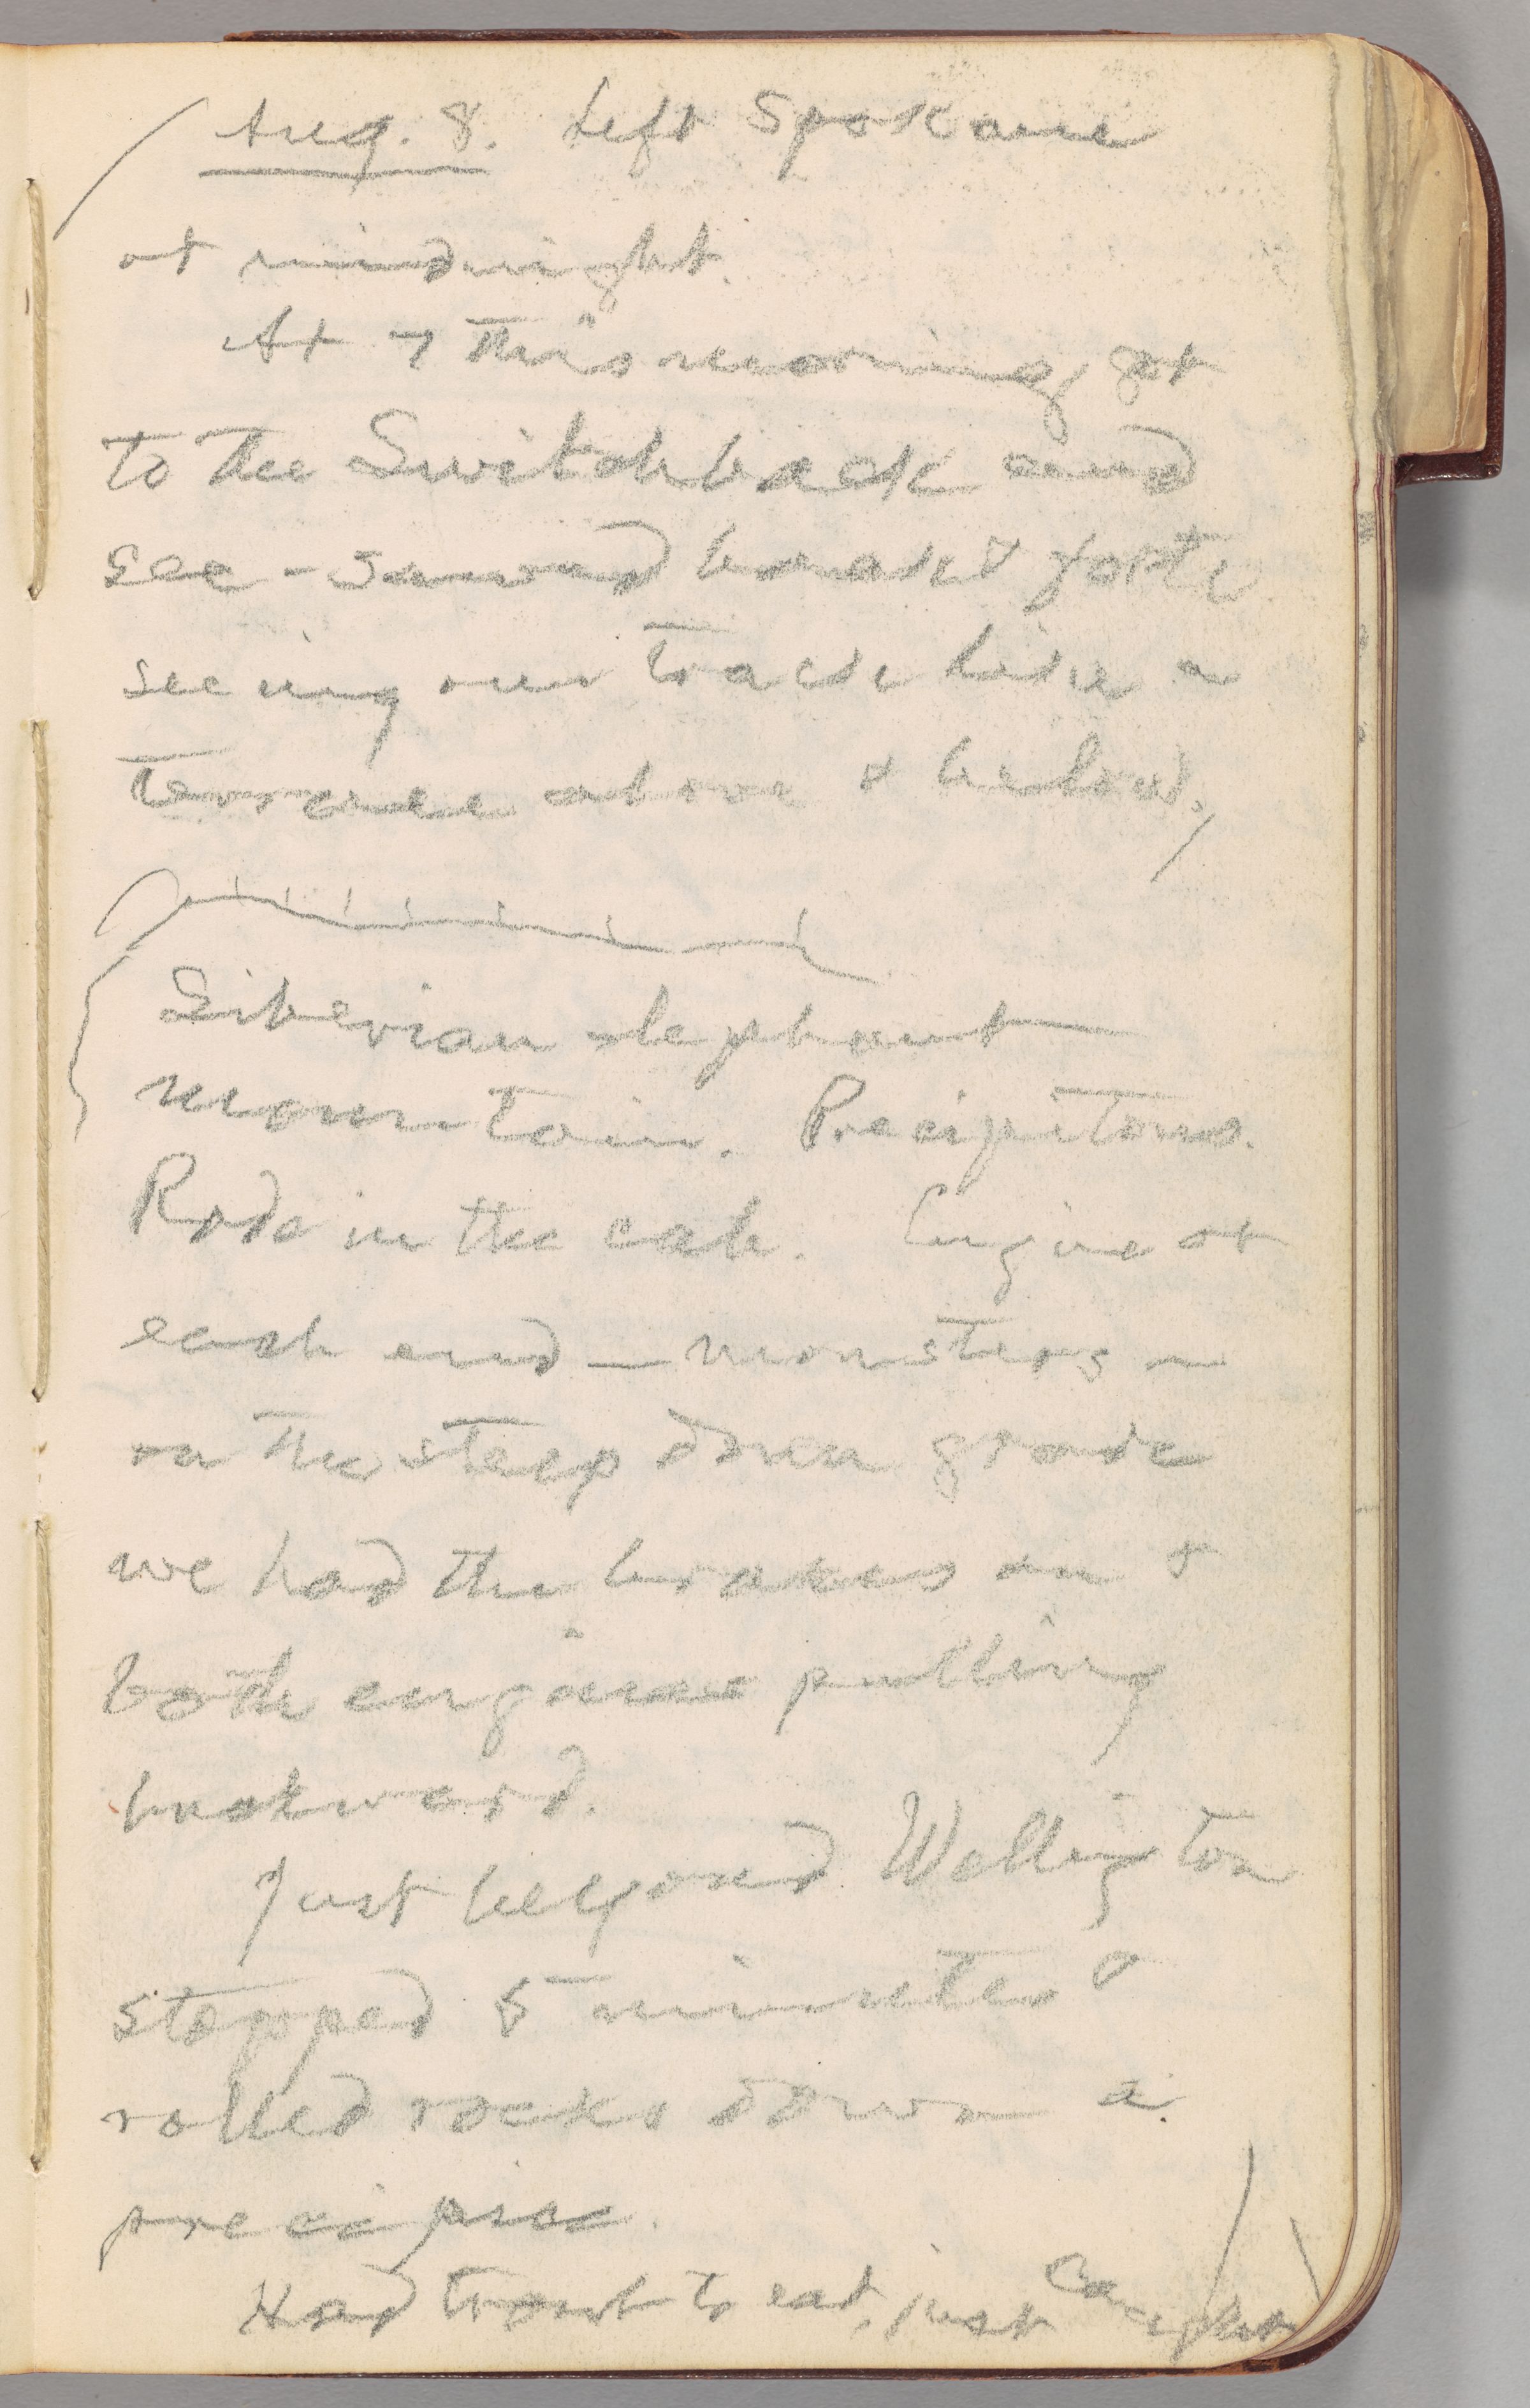 Aug. 8. Left Spokane
at midnight.
At 7 this morning got
to the Switchback and
see-sawed back & forth
seeing our track like a
terrace above & below.
Siberian elephant
mountain. Precipitous.
Rode in the cab. Engine at
each end — monsters —
on the steep down grade
we had the brakes on &
both engines pulling
backward.
Just beyond Wellington
stopped 5 minutes &
rolled rocks down a
precipice.
Had trout to eat, just caught